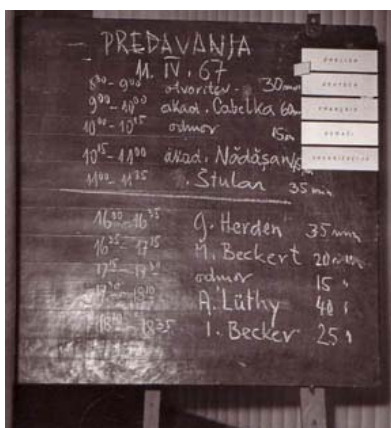 PREDAVANJA
11. IV. 67
8³⁰-9⁰⁰ otvoritev. 30min
9⁰⁰-10⁰⁰ akad. Čabelka 60m
10⁰⁰-10¹⁵ odmor 15m
10¹⁵-11⁰⁰ akad. Nădăşan
11⁰⁰-11³⁵ . Štular 35 min
16⁰⁰-16³⁵ G. Herden 35 min
M. Beckert 20 min
17¹⁵-17³⁰ odmor 15 "
17³⁰-18¹⁰ A. Lüthy 40 "
18¹⁰-18³⁵ I. Becker 25 "
ENGLISH
DEUTSCH
FRANÇAIS
DOMAČI
ORGANIZACIJA